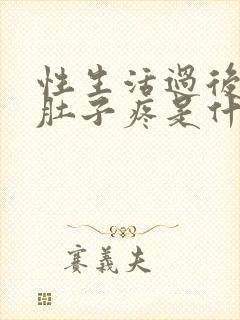 性生活過後
肚子疼是什
賽義夫